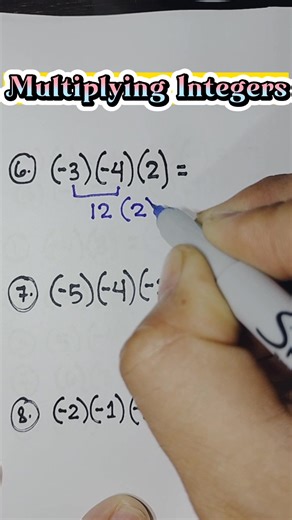 Multiplying Integers
6. (-3)(-4)(2) =
12 (2)
7. (-5)(-4)(-
8. (-2)(-1)(-